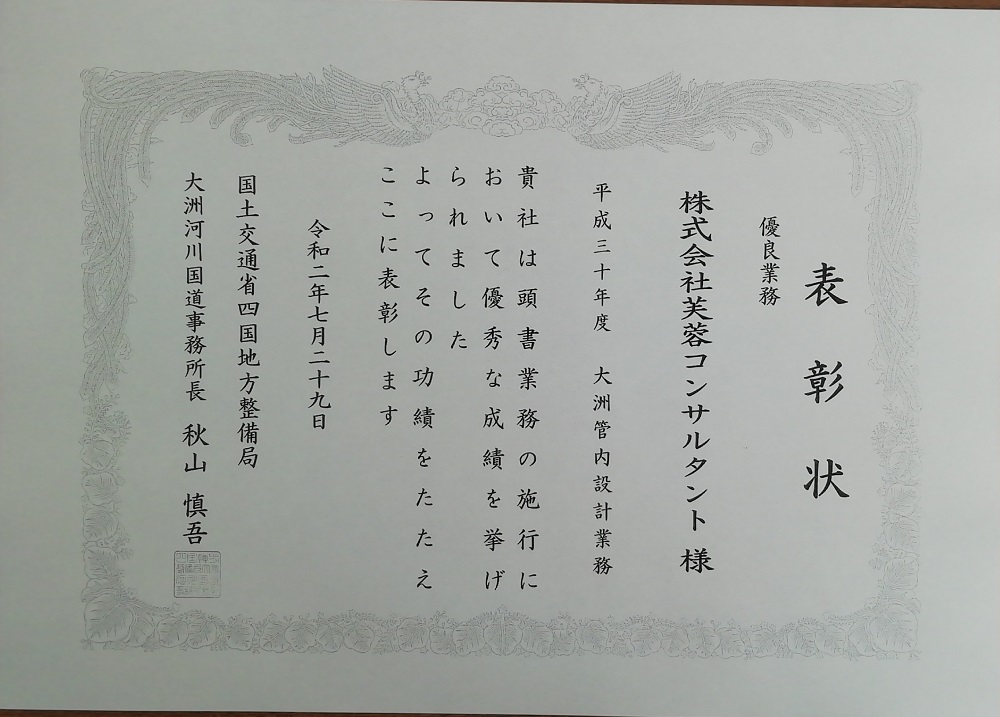 表彰状
優良業務
株式会社芙蓉コンサルタント 様
平成三十年度 大洲管内設計業務
貴社は頭書業務の施行に
おいて優秀な成績を挙げ
られました
よってその功績をたたえ
ここに表彰します
令和二年七月二十九日
国土交通省四国地方整備局
大洲河川国道事務所長 秋山 慎吾